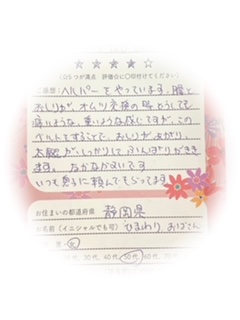 ★★★★☆
(5つが満点 評価☆に○印付けてください)
ご感想: ヘルパーをやっています。腰と
おしりが、オムツ交換の時どうしても
痛いような、重いような感じですが、この
ベルトをすることで、おしりがあがり、
太腿がしっかりしてふんばりがきき
ます。なかなかよいです
いつも息子に頼んでもらってます
お住まいの都道府県 静岡県
お名前(イニシャルでも可) ひまわりおばさん
女
30代、40代、50代、60代、70代